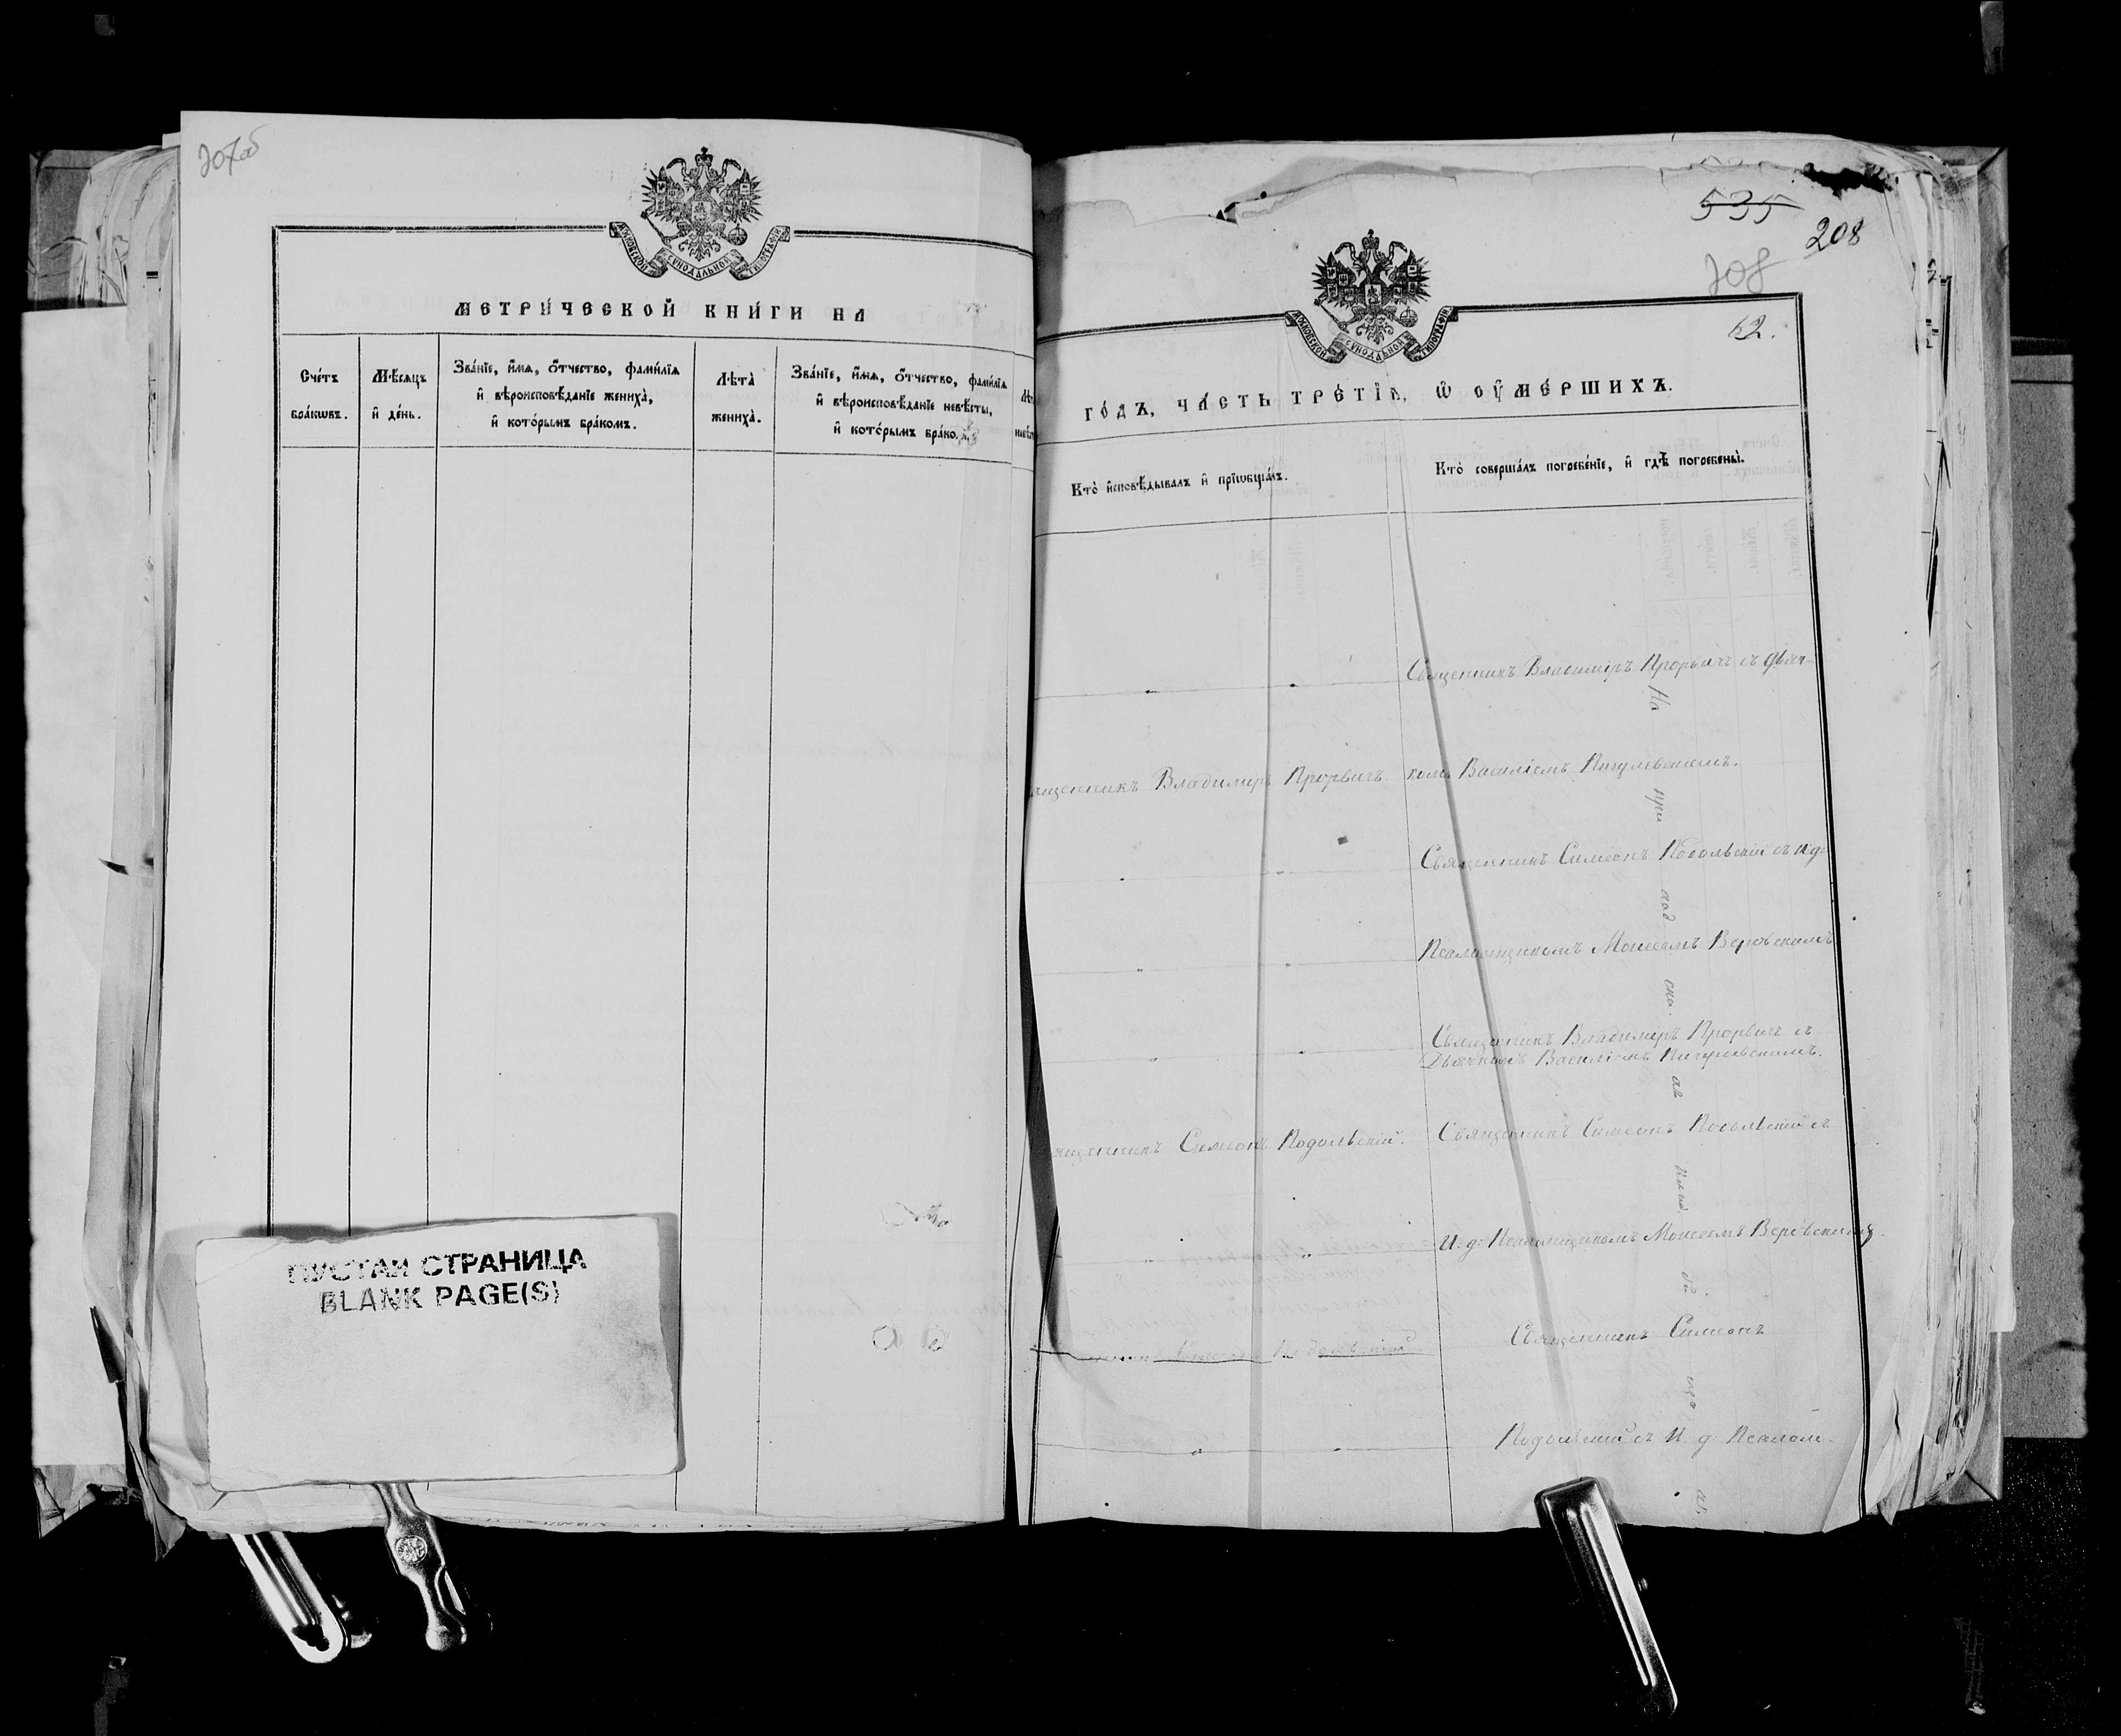 207об
МОСКОВСКОЙ СѴНОДАЛЬНОЙ ТИПОГРАФІИ
МЕТРИ́ЧЕСКОЙ КНИ́ГИ НА
Сче́тъ бра́кѡвъ.
Мѣ́сяцъ и҆ де́нь.
Зва́нїе, и҆́мѧ, ѻ҆́тчество, фами́лїѧ
и҆ вѣроисповѣ́данїе жениха̀,
и҆ кото́рымъ бра́комъ.
Лѣта̀ жениха̀.
Зва́нїе, и҆́мѧ, ѻ҆́тчество, фами́лїѧ
и҆ вѣроисповѣ́данїе невѣ́сты,
и҆ кото́рымъ бра́ко
ПУСТАЯ СТРАНИЦА
BLANK PAGE(S)
535
208
208
62.
МОСКОВСКОЙ СѴНОДАЛЬНОЙ ТИПОГРАФІИ
ГО́ДЪ, ЧА́СТЬ ТРЕ́ТІѦ, Ѡ҆ ОУ҆МЕ́РШИХЪ.
Кто̀ и҆сповѣ́дывалъ и҆ прїѡбща́лъ.
Кто̀ соверша́лъ погребе́нїе, и҆ гдѣ̀ погребены̀.
Священникъ Владиміръ Прорвичъ съ Дьяч-
ященникъ Владимиръ Прорвичъ
комъ Василіемъ
Священникъ Симеонъ Подольскій съ и.д.
Псаломщикомъ Моисеемъ
Священникъ Владимиръ Прорвичъ съ
Дьячкомъ Василіемъ
ященникъ Симеонъ Подольскій.
Священникъ Симеонъ Подольскій съ
И. д. Псаломщикомъ Моисеемъ
Священникъ Симеонъ
Подольскій съ И. д. Псалом-
На
при
под